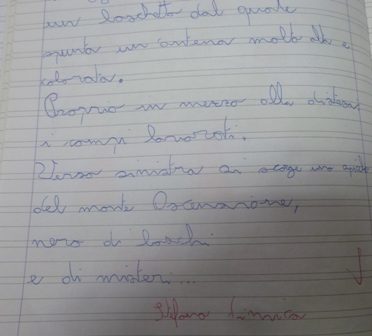 un boschetto dal quale
spunta un'antena molto alta e
colorata.
Proprio in mezzo alla distesa
i campi lavorati.
Verso sinistra si scorge uno
del monte Oscensione,
nero di boschi
e di misteri...